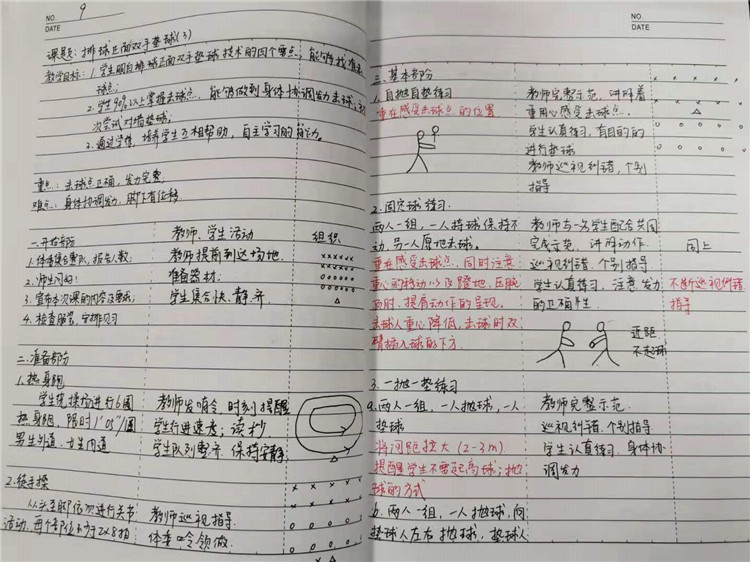 NO.
9
DATE
课题：排球正面双手垫球(3)
教学目标：1.学生明白排球正面双手垫球技术的四个要点，能够找准击
球点；
2.学生90%以上掌握击球点，能够做到身体协调发力击球，
次尝试对墙垫球；
3.通过学练，培养学生互相帮助，自主学习的能力。
重点：击球点正确，发力完整
难点：身体协调发力，脚下有位移
一.开始部分
教师、学生活动
组织
1.体委集合整队，报告人数；
教师提前到达场地.
2.师生问好；
准备器材；
3.宣布本次课的内容及要求；
学生集合快、静、齐
4.检查服装，安排见习
二.准备部分
1.热身跑
学生绕操场进行6圈
教师发哨令，时刻提醒
热身跑，限时1'05"/圈
学生行进速度；读秒
男生外道，女生内道
学生队列整齐，保持安静.
2.徒手操
从头至脚依次进行关节
教师巡视指导.
活动，每个部位不少于2x8拍
体委口令领做.
NO.
DATE
三.基本部分
1.自抛自垫练习
教师完整示范，讲解着
重在感受击球点的位置
重用心感受击球点.
学生认真练习，有目的的
进行垫球
教师巡视纠错，个别
指导
2.固定球练习.
两人一组，一人持球保持不
教师与一名学生配合共同
动，另一人原地击球。
完成示范，讲解动作
同上
重在感受击球点，同时注意
巡视纠错，个别指导
重心的移动以及蹬地、压腕
学生认真练习，注意发力
不断巡视纠错
面时，提肩动作的呈现。
的正确于生
指导
击球人重心降低，击球时双
近距
臂插入球的下方.
不起球
3.一抛一垫练习
a.两人一组，一人抛球，一人
教师完整示范.
垫球
巡视纠错，个别指导
将间距拉大(2-3m)
学生认真练习，身体协
提醒学生不要起高球；抛
调发力
球的方式
b.两人一组，一人抛球，向
垫球人左右抛球，垫球人